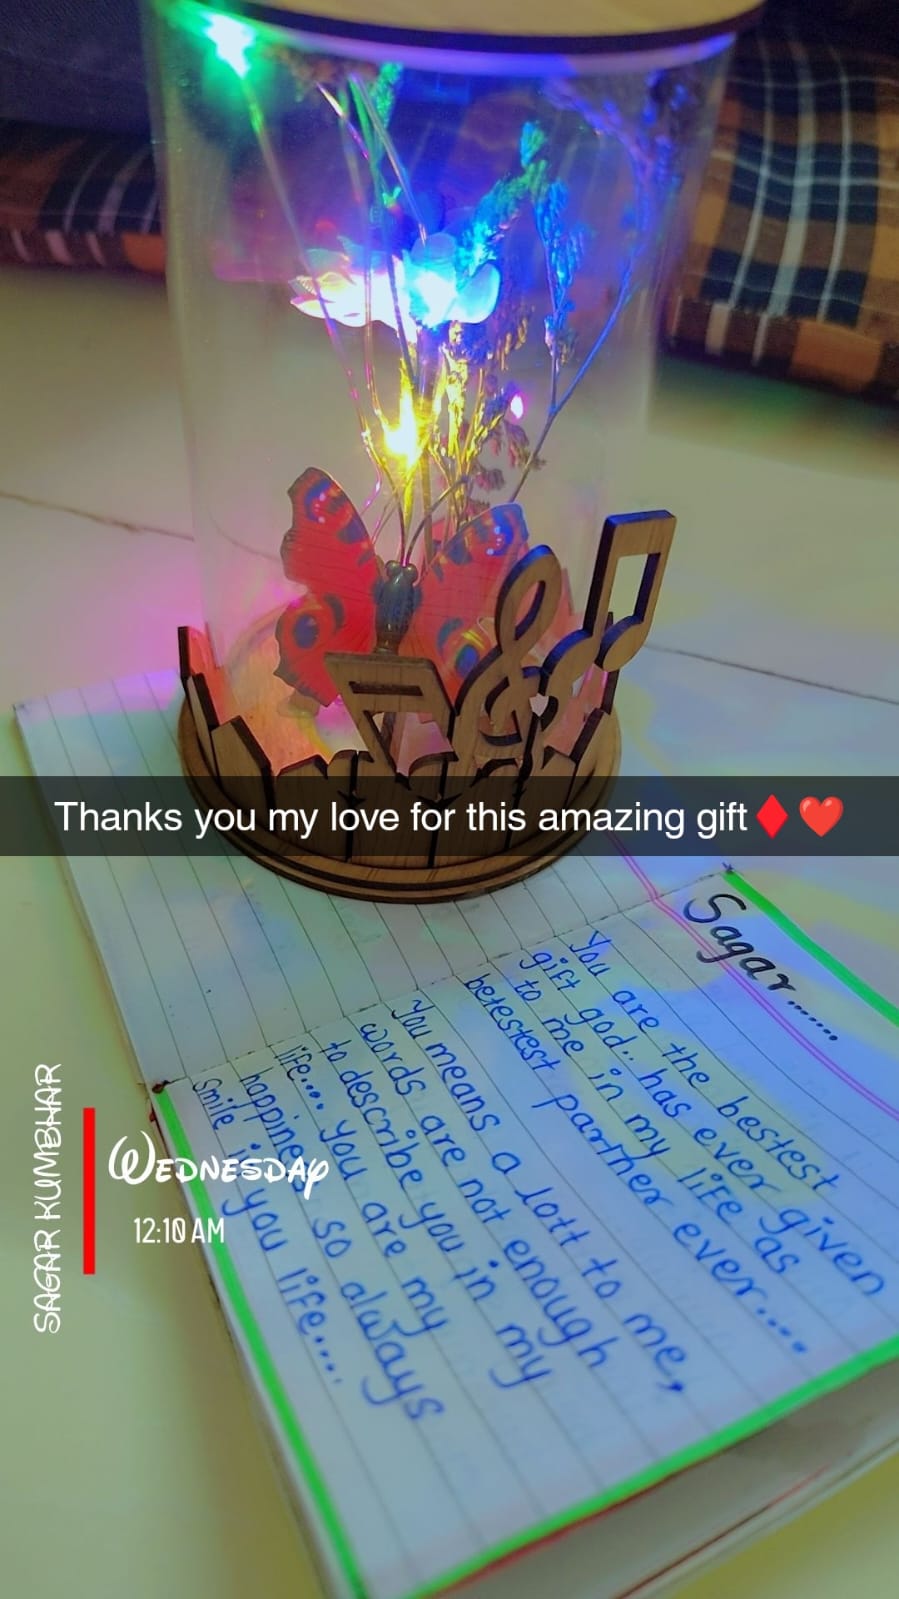 Thanks you my love for this amazing gift♦️❤️
Sagar.......
You are the bestest
gift god.. has ever given
to me in my life as
betestest partner ever....
You means a lott to me,
words are not enough
to describe you in my
life.... you are my
happiness so always
smile in you life....
SAGAR KUMBHAR
WEDNESDAY
12:10 AM